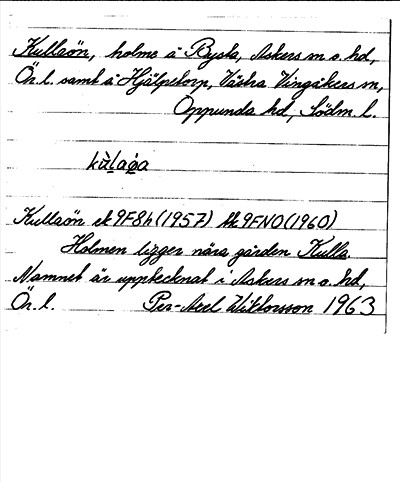 Kullaön, holme å Bysta, Askers sn o. hd,
Ör. l. samt å Hjälpstorp, Västra Vingåkers sn,
Oppunda hd, Södm. l.
Kullaön ek 9F8h (1957) tk 9FNO (1960)
Holmen ligger nära gården Kulla.
Namnet är upptecknat i Askers sn o. hd,
Ör. l. Per-Axel Wiktorsson 1963